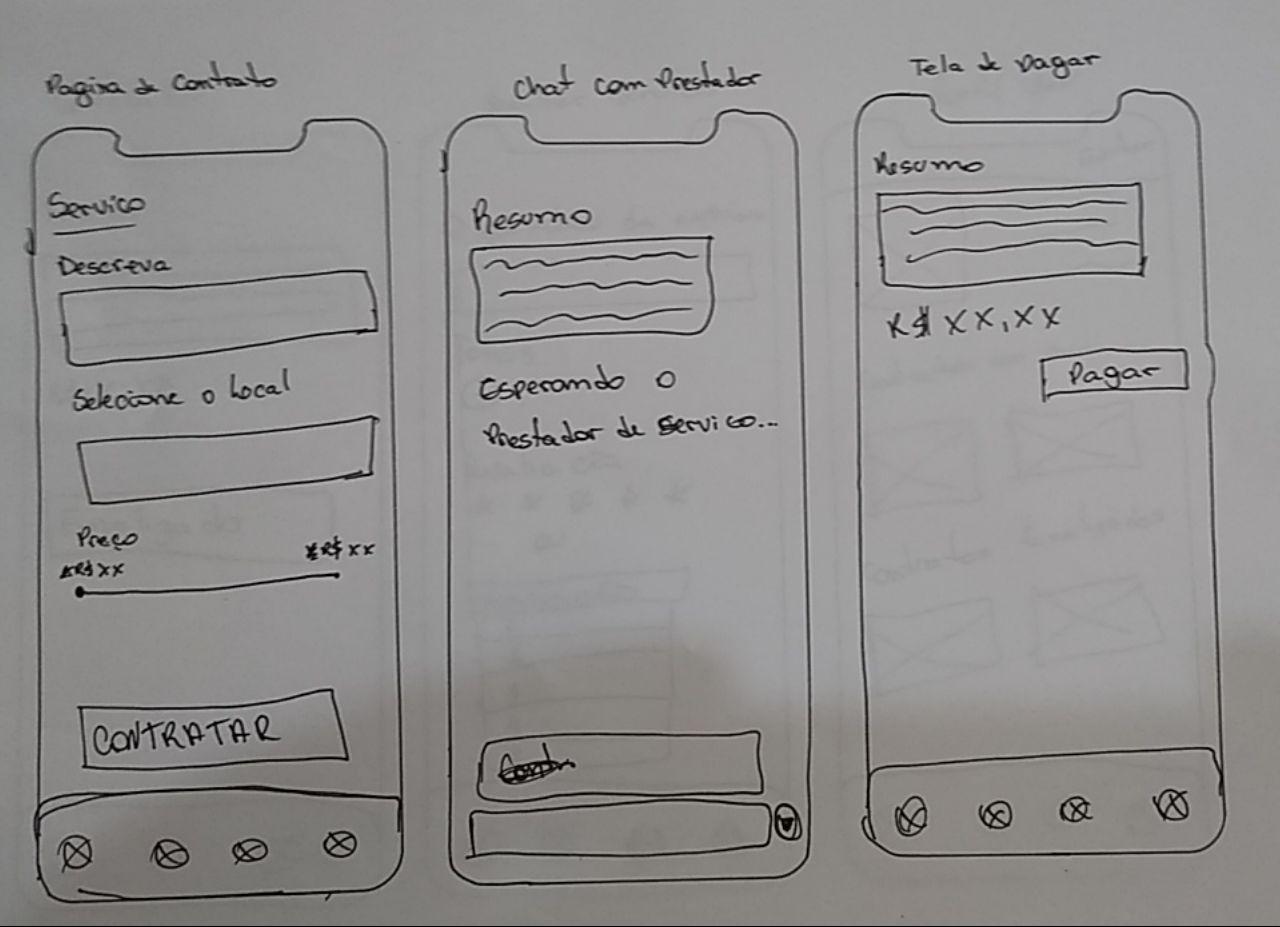 Pagina de Contrato
Servico
Descreva
Selecione o Local
Preço
R$ XX
R$ XX
CONTRATAR
Chat com Prestador
Resumo
Esperando o
Prestador de servico...
Tela de Pagar
Resumo
R$ XX,XX
Pagar